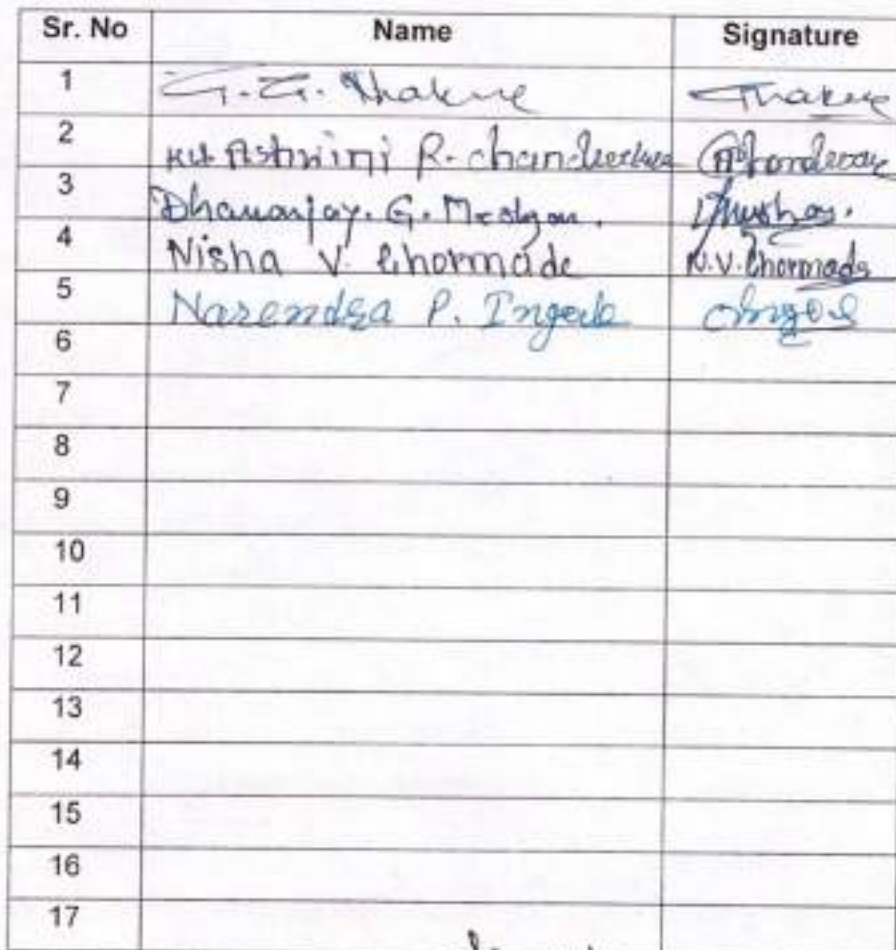 Sr. No Name Signature
1 G. G. Thakre Thakre
2 Ku. Ashwini R. Chandurkar
3 Dhananjay. G.
4 Nisha V. Ghormade N.V. Ghormade
5 Narendra P. Ingole Ingole
6
7
8
9
10
11
12
13
14
15
16
17